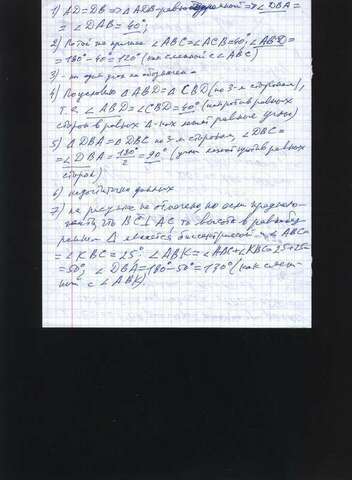 1) AD=DB => ΔADB-равнобедренный => ∠DBA =
= ∠DAB = 40°;
2) По той же причине ∠ABC=∠ACB=40°, ∠ABD =
= 180°-40°=120° (как смежный с ∠ABC)
3) - ни один угол не обозначен
4) По условию ΔABD = ΔCBD (по 3-м сторонам),
т.е. ∠ABD=∠CBD=40° (напротив равных
сторон в равных Δ-ках лежат равные углы)
5) ΔDBA = ΔDBC по 3-м сторонам, ∠DBC =
= ∠DBA = 180°/2 = 90° (углы лежат против равных
сторон)
6) недостаточно данных
7) на рисунке не отмечено, но если предполо-
жить, что BC⊥AC, то высота в равнобед-
ренном Δ является биссектрисой и ∠ABC=
= ∠KBC = 25°. ∠ABK=∠ABC+∠KBC=25+25=
=50°, ∠DBA=180°-50°=130° (как смеж-
ный с ∠ABK).